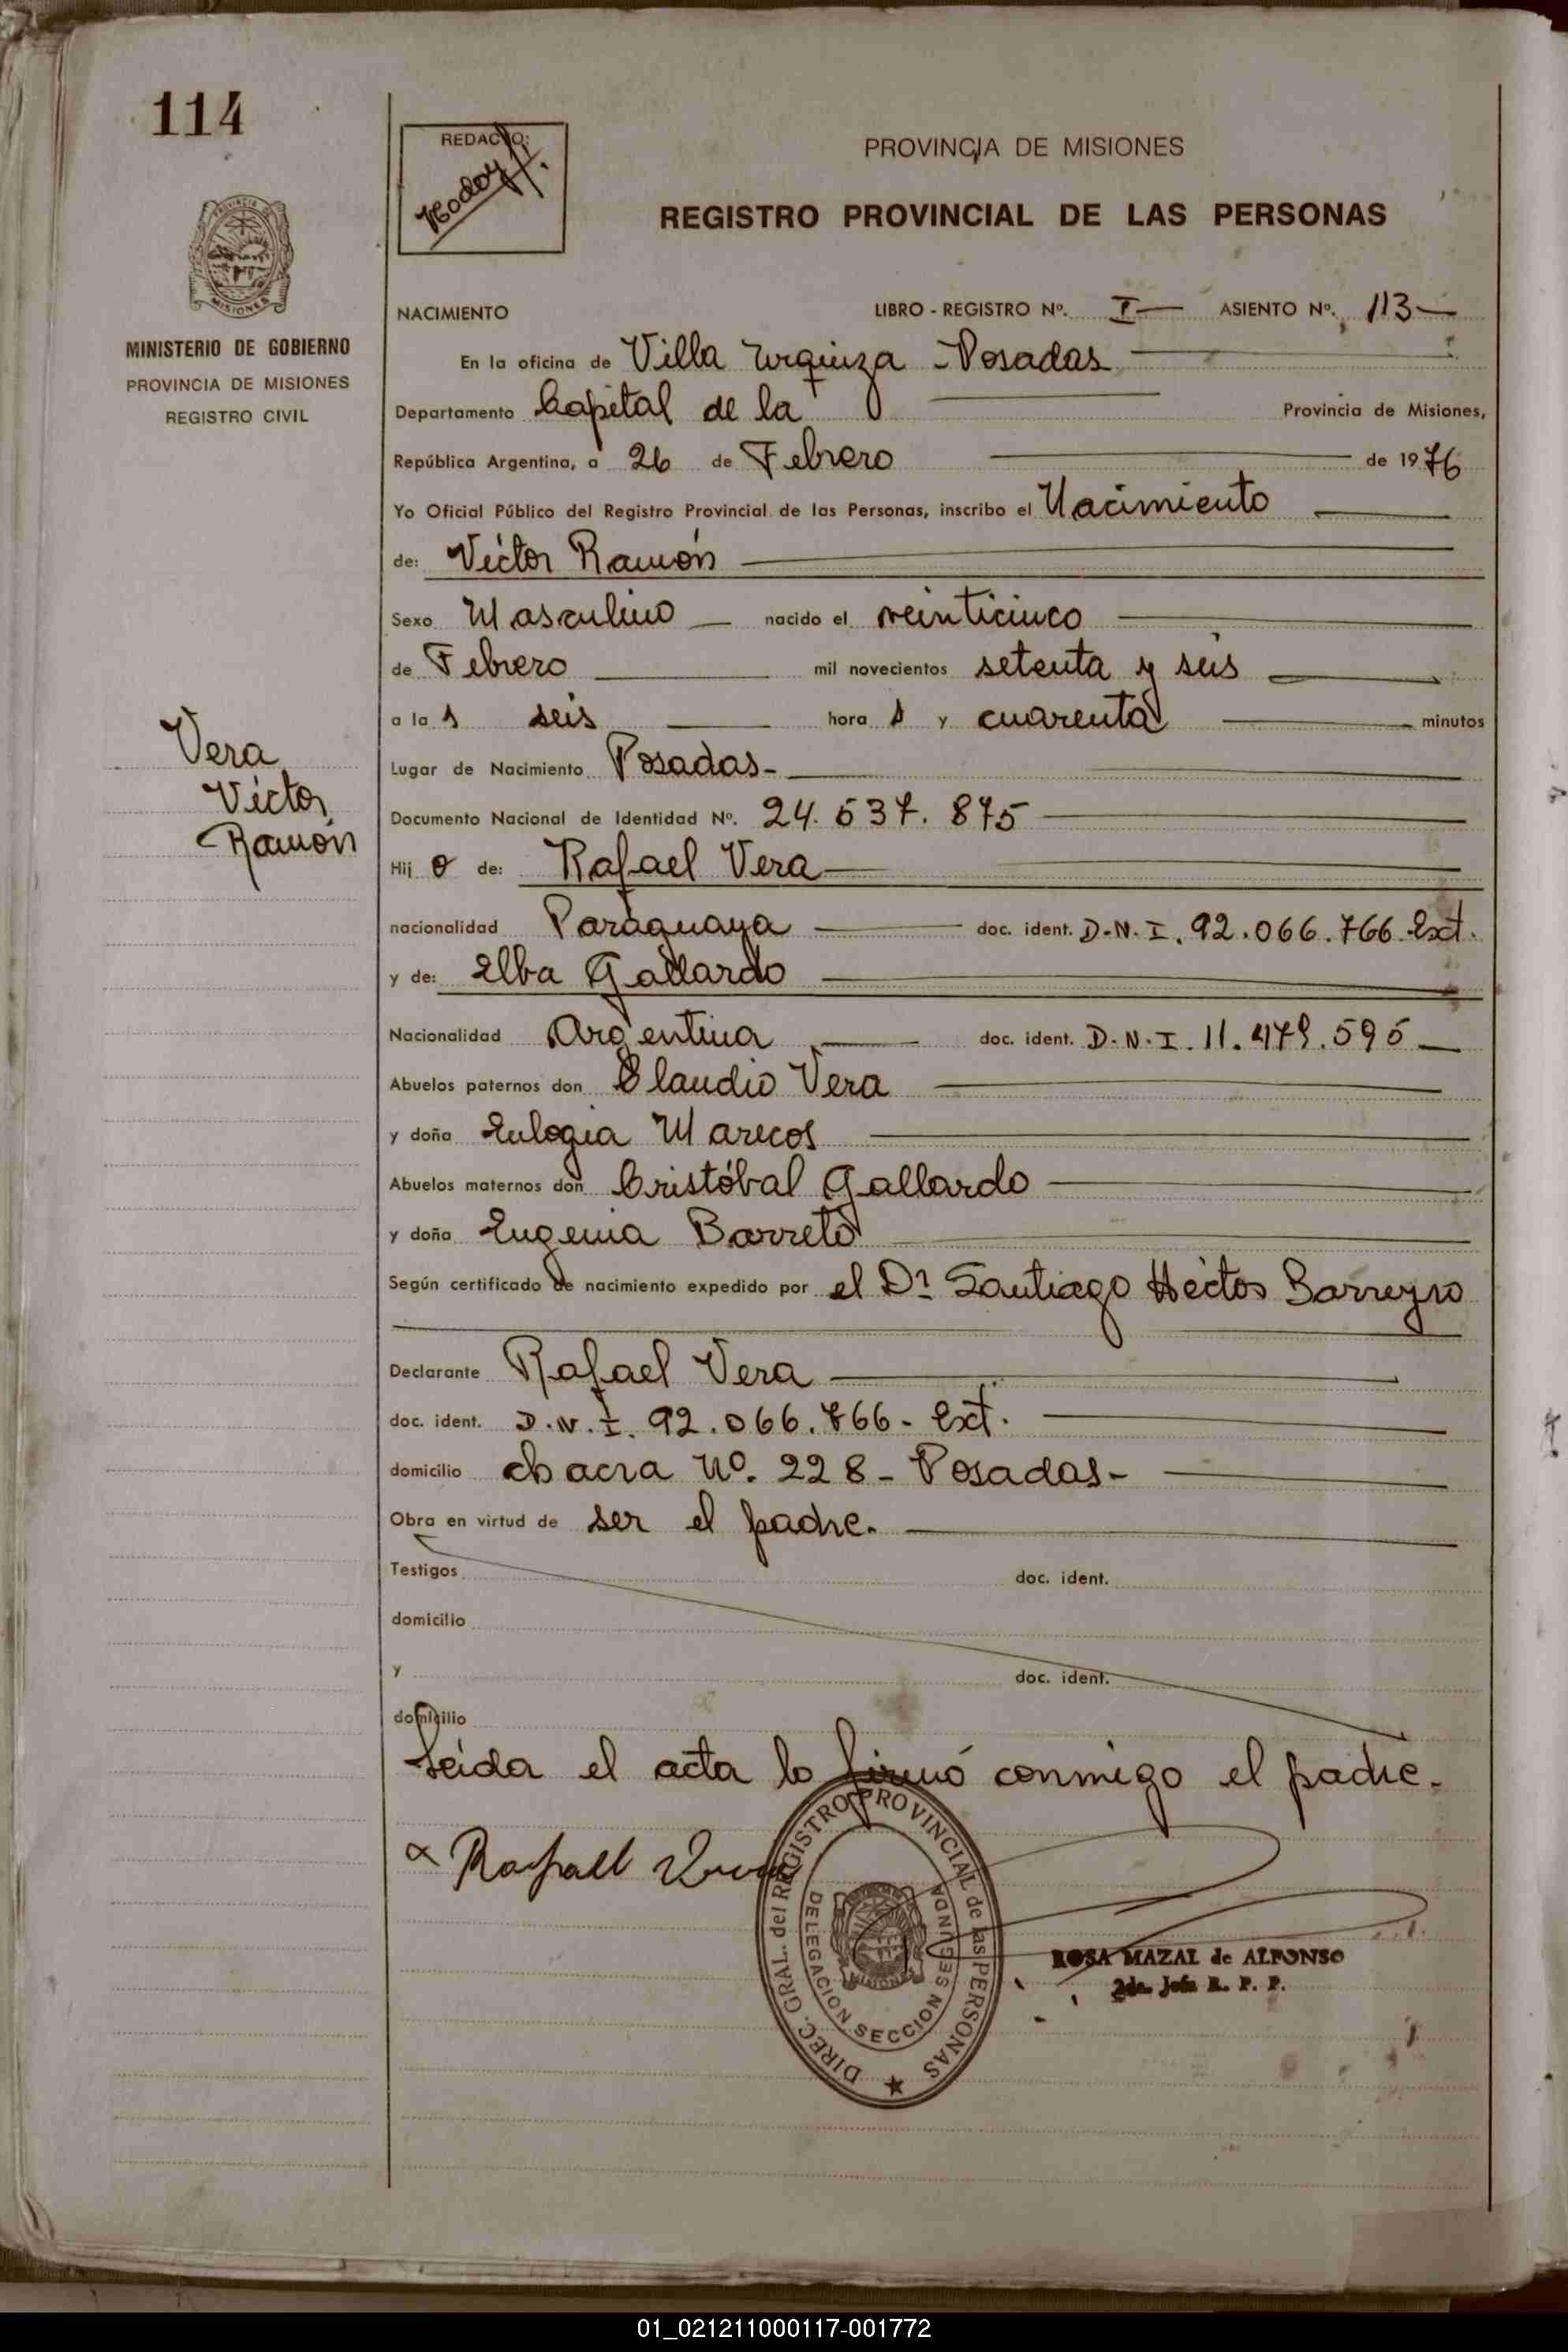 114
REDACTO:
PROVINCIA DE MISIONES
REGISTRO PROVINCIAL DE LAS PERSONAS
MINISTERIO DE GOBIERNO
PROVINCIA DE MISIONES
REGISTRO CIVIL
NACIMIENTO LIBRO - REGISTRO Nº. I ASIENTO Nº. 113
En la oficina de Villa Urquiza - Posadas
Departamento Capital de la Provincia de Misiones,
República Argentina, a 26 de Febrero de 1976
Yo Oficial Público del Registro Provincial de las Personas, inscribo el Nacimiento
de: Víctor Ramón
Sexo Masculino nacido el veinticinco
de Febrero mil novecientos setenta y seis
a la s seis hora s y cuarenta minutos
Vera
Víctor
Ramón
Lugar de Nacimiento Posadas-
Documento Nacional de Identidad Nº. 24.537.875
Hij o de: Rafael Vera
nacionalidad Paraguaya doc. ident. D.N.I. 92.066.766 Ext.
y de: Elba Gallardo
Nacionalidad Argentina doc. ident. D.N.I. 11.479.595
Abuelos paternos don Claudio Vera
y doña Eulogia Marecos
Abuelos maternos don Cristóbal Gallardo
y doña Eugenia Barreto
Según certificado de nacimiento expedido por el Dr Santiago Héctor Barreyro
Declarante Rafael Vera
doc. ident. D.N.I. 92.066.766- Ext.
domicilio chacra Nº. 228 - Posadas-
Obra en virtud de ser el padre.
Testigos doc. ident.
domicilio
y doc. ident.
domicilio
Leída el acta lo firmó conmigo el padre.
Rafaell Vera
DIREC. GRAL. del REGISTRO PROVINCIAL de las PERSONAS
DELEGACION SECCION SEGUNDA
MISIONES
ROSA MAZAL de ALFONSO
2da. Jefa R. P. P.
01_021211000117-001772